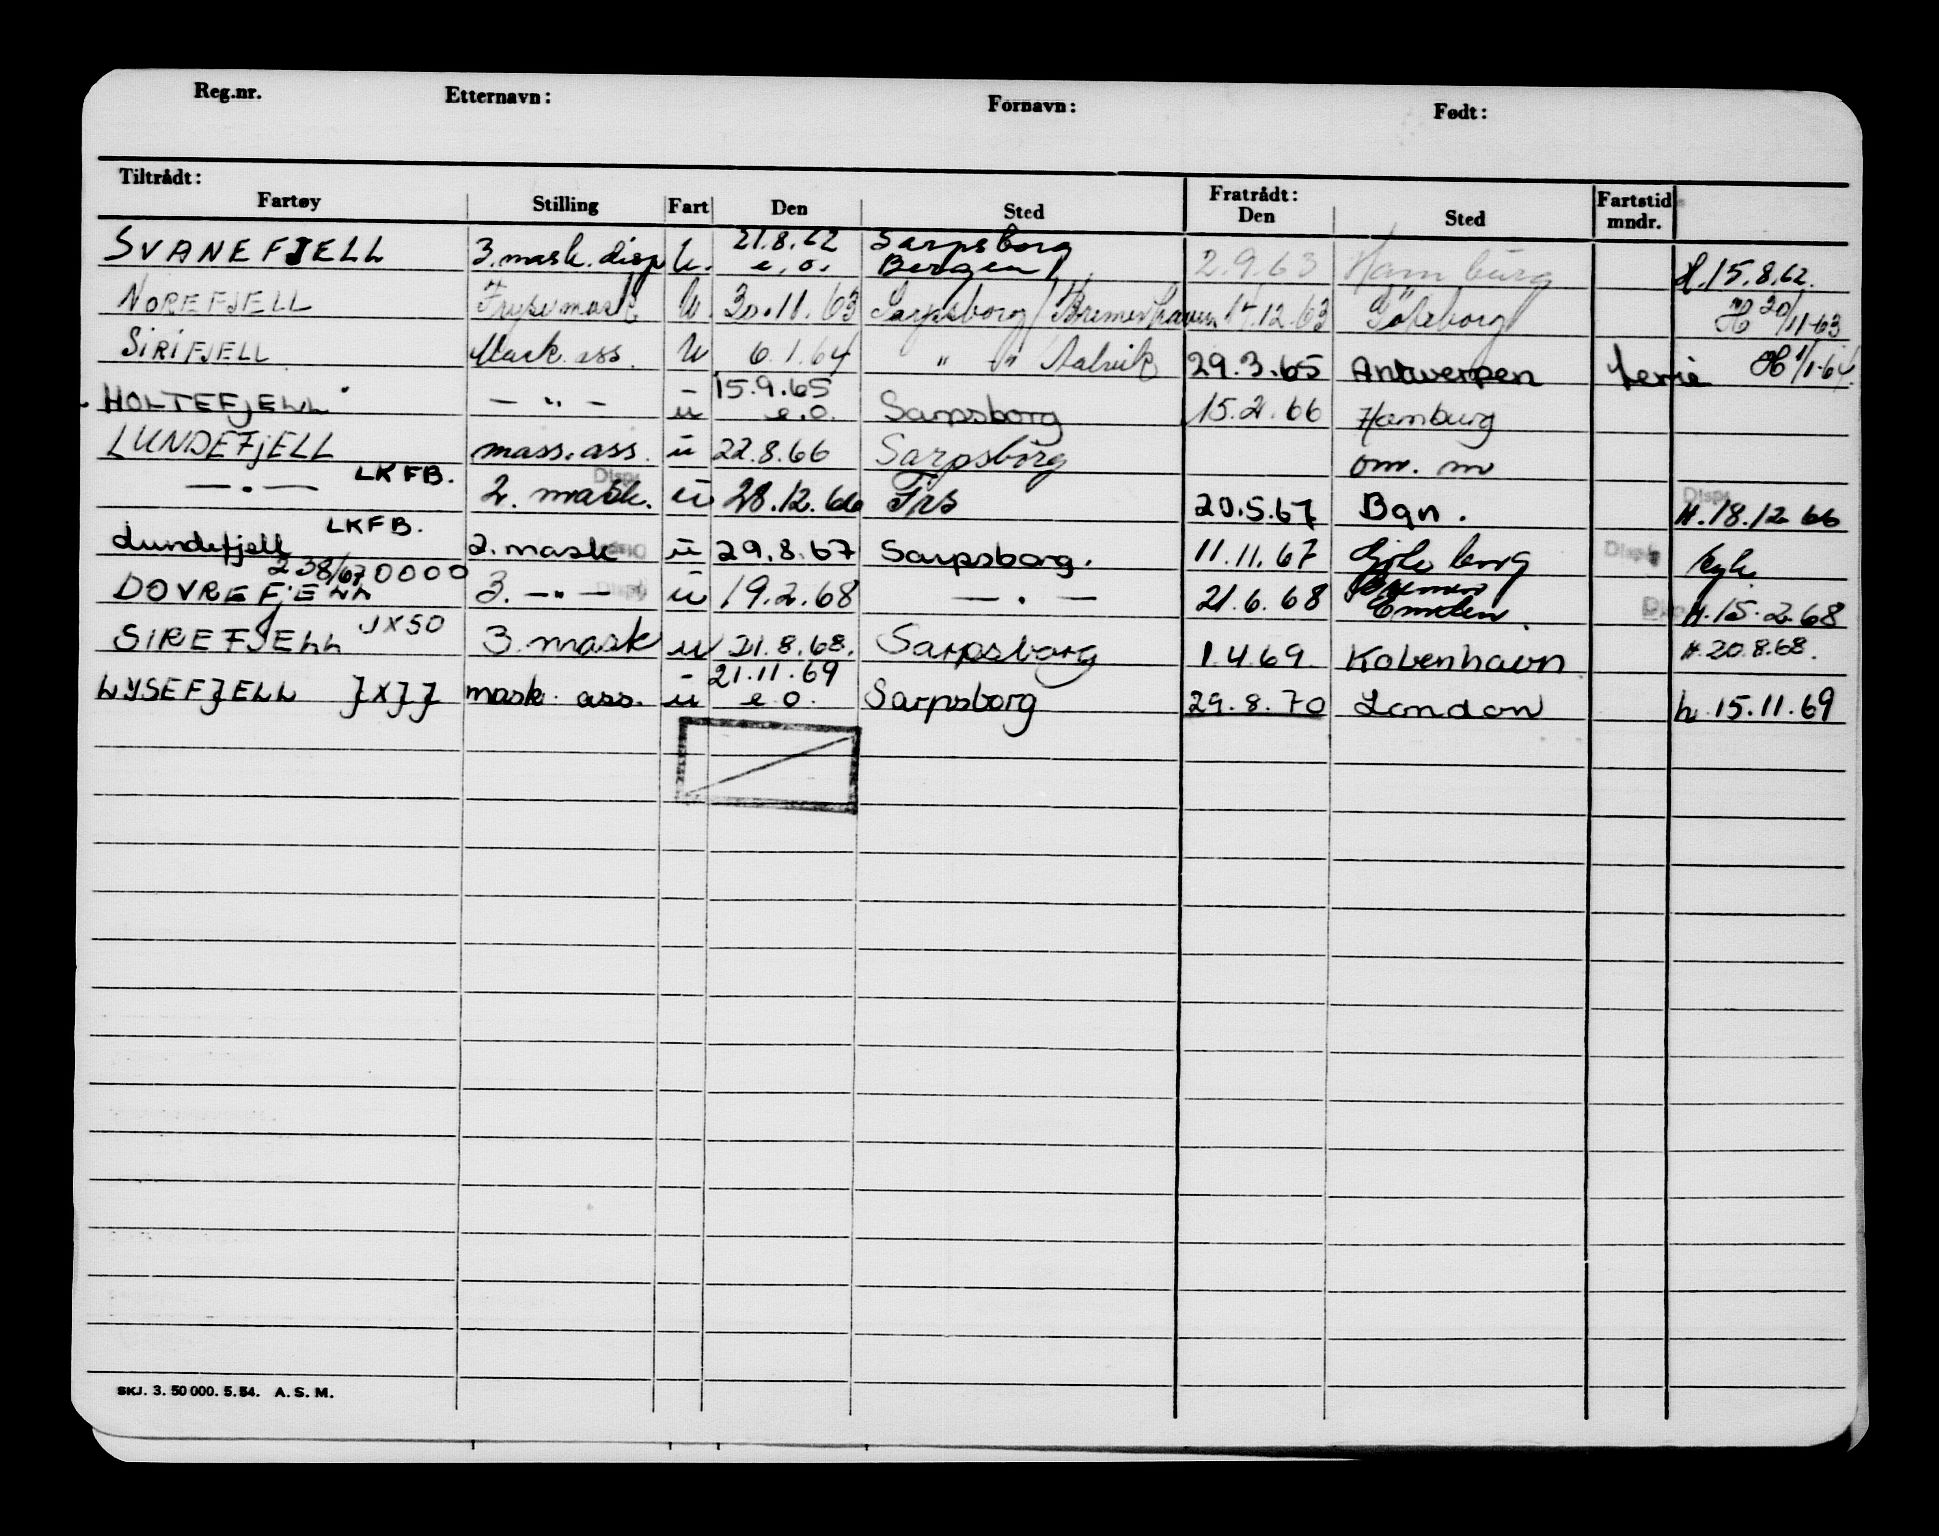 Reg.nr. Etternavn: Fornavn: Født:
Tiltrådt: Fratrådt:
Fartøy Stilling Fart Den Sted Den Sted Fartstid mndr.
SVANEFJELL 3.mask.disp U. 21.8.62 e.o. Sarpsborg Bergen 2.9.63 Hamburg H.15.8.62.
NOREFJELL Frysemask U. 30.11.63 Sarpsborg/Bremerhaven 17.12.63 Göteborg H 20/11-63
SIRIFJELL Mask.ass. U 6.1.64 " -"- Aalvik 29.3.65 Antwerpen ferie H 1/1-64.
HOLTEFJELL - " - u 15.9.65 e.o. Sarpsborg 15.2.66 Hamburg
LUNDEFJELL mass.ass. u 22.8.66 Sarpsborg om. m
— . — LKFB. 2. mask. Disp u 28.12.66 Frs 20.5.67 Bgn. Disp H.18.12 66
Lundefjell LKFB. 2.mask Disp u 29.8.67 Sarpsborg. 11.11.67 Göteborg Disp syk.
238/67 0000
DOVREFJELL 3. -"- Disp u 19.2.68 — . — 21.6.68 Bremen Emden. Disp H.15.2.68
SIREFJELL JXSO 3.mask u 21.8.68. Sarpsborg 1.4.69. København H.20.8.68.
LYSEFJELL JXJJ mask. ass. u 21.11.69 e.o. Sarpsborg 29.8.70 London h.15.11.69
SKJ. 3. 50 000. 5. 54. A. S. M.